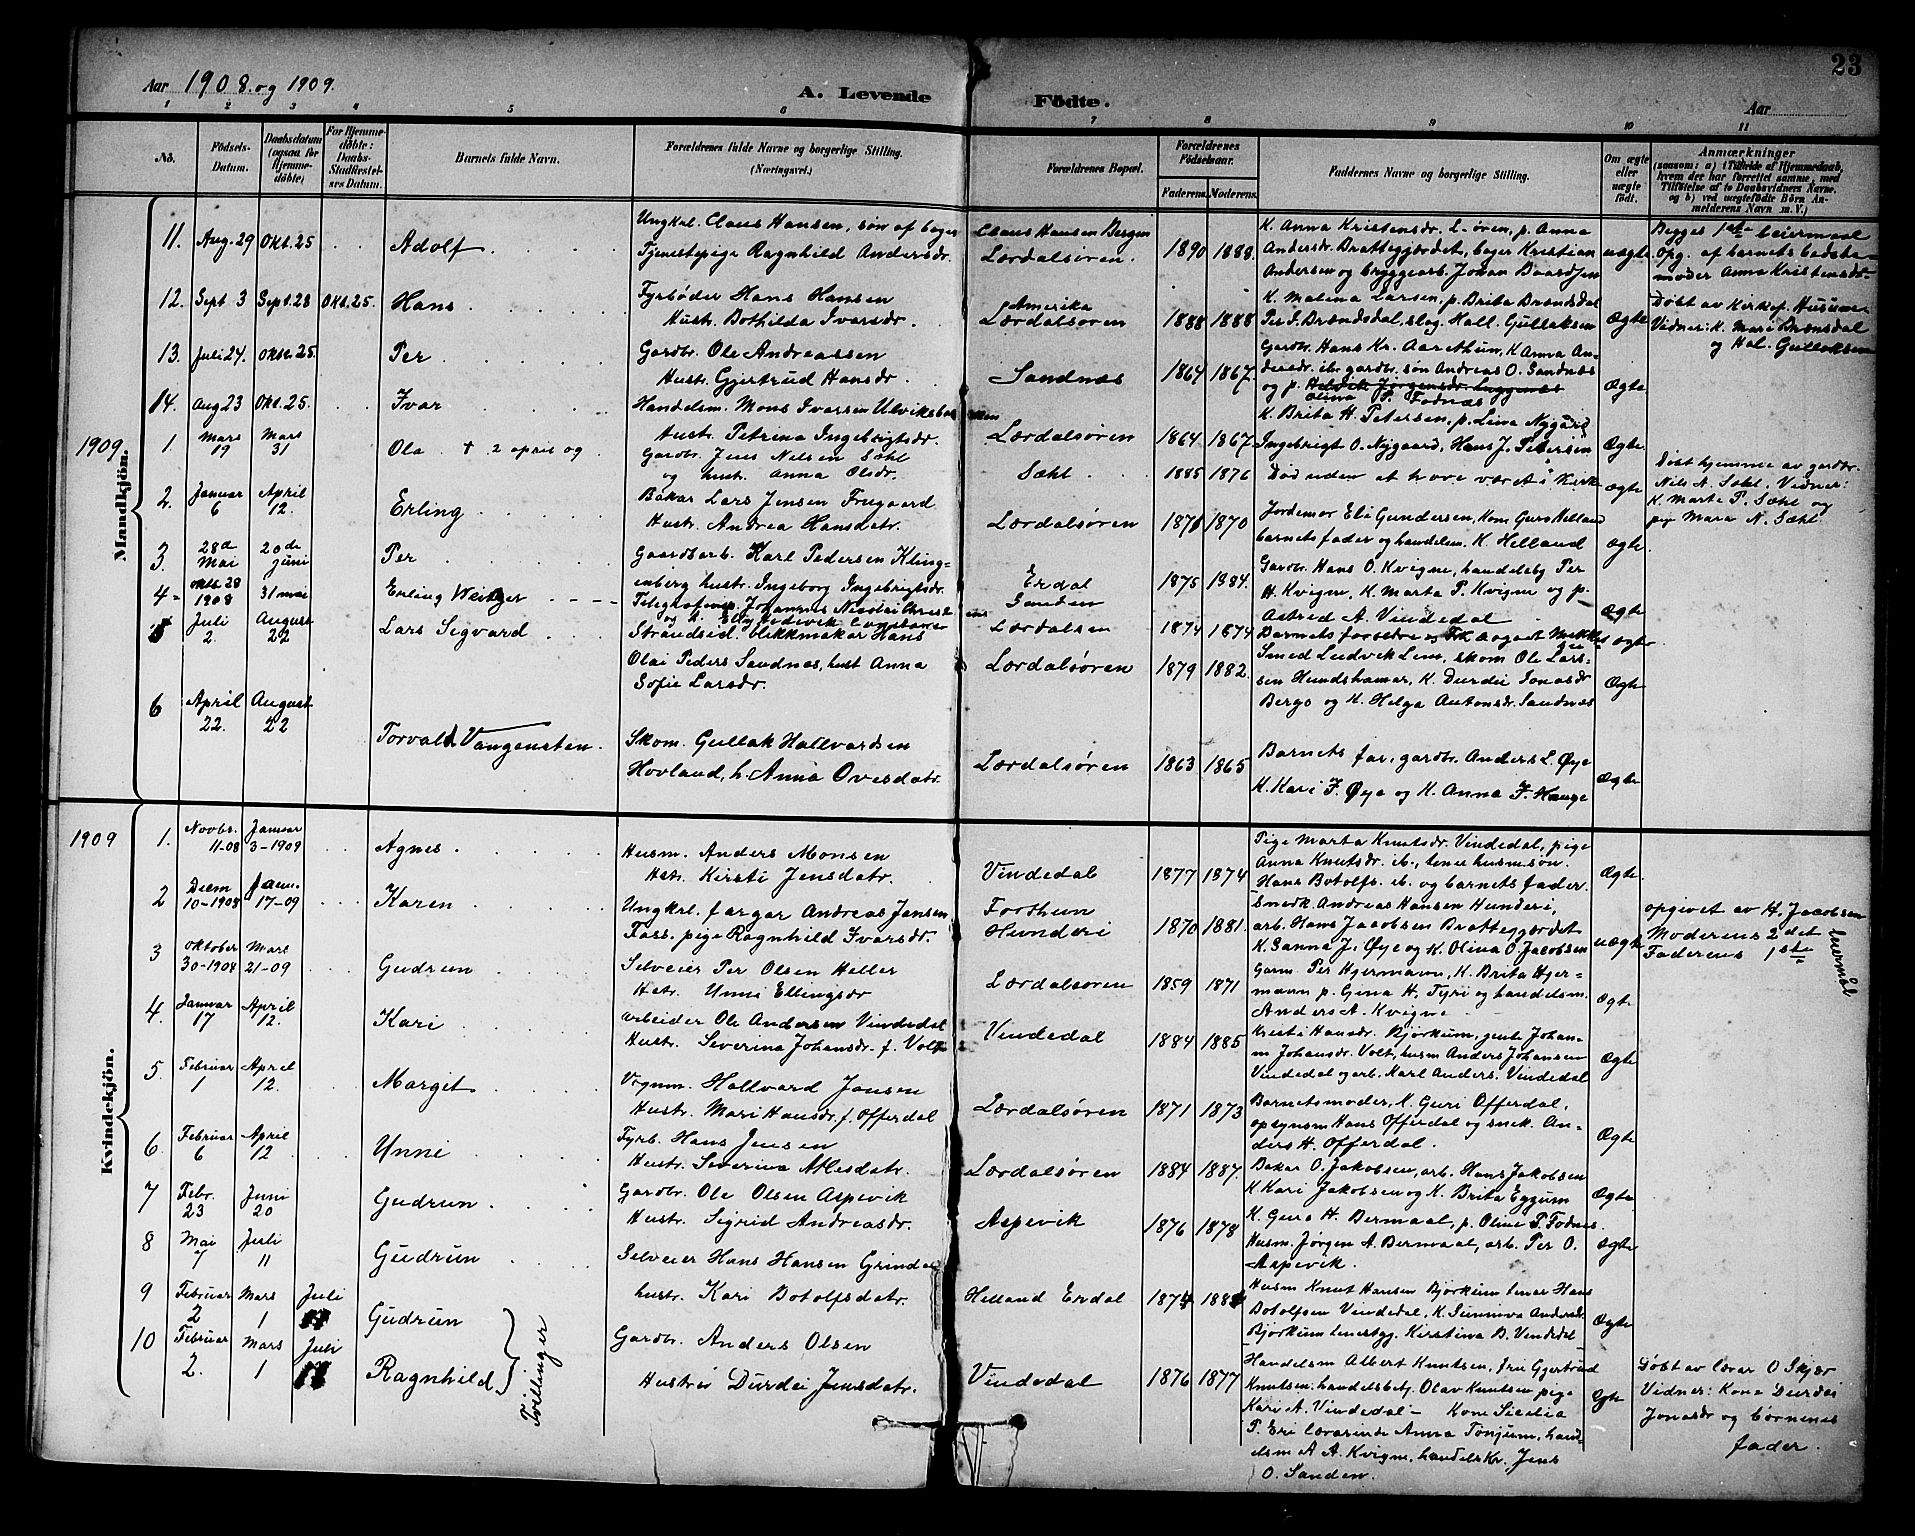 Aar 1908. og 1909.
A. Levende Födte.
Aar
23
1 2 3 4 5 6 7 8 9 10 11
No.
Födsels-Datum.
Daabsdatum (ogsaa for Hjemme-döbte)
For Hjemme-döbte: Daabs-Stadfæstel-ses Datum.
Barnets fulde Navn.
Forældrenes fulde Navne og borgerlige Stilling.
(Næringsvei.)
Forældrenes Bopæl.
Forældrenes Födselsaar.
Faderens. Moderens.
Faddernes Navne og borgerlige Stilling.
Om ægte eller uægte födt.
Anmærkninger
(saasom: a) i Tilfælde af Hjemmedaab, hvem der har forrettet samme, med Tilföielse af to Daabsvidners Navne, og b) ved uægtefödte Börn An-melderens Navn m. V.)
Mandkjön.
11. Aug. 29 Okt. 25 Adolf
Ungkal. Claus Hansen, søn af bager
Tjenestepige Ragnhild Andersdr.
Claus Hansen Bergen
Lærdalsøren. 1890 1888.
K. Anna Kristensdr. L-øren, p. Anna
Andersdr. Brattegjordet, bager Kristian
Andersen og bryggearb. Johan Baardsen
uægte
Begges 1ste leiermaal
Opg. af barnets bedste-
moder Anna Kristensdr.
12. Sept 3 Sept. 28 Okt. 25. Hans
Fyrbøder Hans Hansen
Hustr. Bothilda Ivarsdr.
Amerika
Lærdalsøren 1888 1888
K. Malena Larsen, p. Brita Brændsdal
Per S. Brændsdal, slag. Hall. Gullaksen
Ægte
Døbt av Kirkef. Husum
Vidner: K. Mari Brænsdal
og Hal. Gullaksen
13. Juli 24. Okt. 25. Per
Gardbr. Ole Andreassen
Hustr. Gjertrud Hansdr.
Sandnæs 1864 1867.
Gardbr. Hans Kr. Aarethum, K Anna An-
dersdr. ib. gardbr. søn Andreas O. Sandnæs
og p. Olina P. Fodnæs
Ægte
14. Aug 23 Okt. 25. Ivar
Handelsm. Mons Ivarsen Ulviksbakken
Hustr. Petrina Ingebrigtsdr.
Lærdalsøren 1864 1867.
K. Brita H. Petersen, p. Lina Nygård
Ingebrigt O. Nygaard, Hans J. Petersen
Ægte
1909.
1 Mars 19 Mars 31 Ola + 2 april og
Gardbr. Jens Nilsen Sæhl
og hust. Anna Olsdr.
Sæhl. 1885 1876
Død uden at have været i Kirke
ægte
Døbt hjemme av gardbr.
Nils A. Sæhl. Vidner:
K. Marta P. Sæhl og
pig Mara N. Sæhl.
2. Januar 6 April 12. Erling
Bakar Lars Jensen Frugaard
Hustr. Andrea Hansdatr.
Lærdalsøren 1871 1870
Jordemor Eli Gundersen, Kom Guro Helland
barnets fader og handelsm. K. Helland
ægte
3. 28de Mai 20de juni Per
Gaardsarb. Karl Pedersen Kling-
enberg hustr. Ingeborg Ingebrigtsdr.
Erdal 1875 1884.
Gardbr. Hans O. Kvigne, handelsbg Per
H. Kvigne, K. Marta P. Kvigne og p.
Astrid A. Vindedal
Ægte
4 - okt. 28 1908 31 mai Erling Weinger
Telegrafmp. Johannes Nicolai
Sanden
Lærdalsen 1874 1874
Barnets forældre og
ægte
5 Juli 2. August 22 Lars Sigvard
Strandsid. blikkmakar Hans
Olai Peders Sandnæs, hust Anna
Sofie Larsdr.
Lærdalsøren 1879 1882.
Smed Ludvik Lem, skom Ole Lars-
sen Hundshamar, K. Durdei Jonasdr
Bergo og K. Helga Antonsdr. Sandnæs
Ægte
6 April 22. August 22 Torvald Vangensten.
Skom. Gullak Hallvardsen
Hovland, h. Anna Ovesdatr
Lærdalsøren 1863 1865
Barnets far, gardbr. Anders L. Øye
K. Kari F. Øye og K. Anna F. Hauge
Ægte
Kvindekjön.
1909
1. Novbr. 11-08 Januar 3-1909 Agnes
Husm. Anders Monsen
Hstr. Kirsti Jensdatr.
Vindedal 1877 1874
Pige Marta Knutsdr. Vindedal, pige
Anna Knutsdr. ib., tener husmsøn.
Hans Botolfs. ib. og barnets fader.
Ægte
2 Decm 10-1908 Janu. 17-09 Karen
Ungkrl. fargar Andreas Jansen
Foss. pige Ragnhild Ivarsdr.
Forthun
Hunderi 1870 1881.
Snedk. Andreas Hansen Hunderi,
arb. Hans Jacobsen Brattegjordet
K. Sanna J. Øye og K. Olina O. Jacobsen
uægte
opgivet av H. Jacobsen
Moderens 2det
Faderens 1ste
leiermål
3 Oktober 30-1904 Mars 21-09 Gudrun
Selveier Per Olsen Heller
Hstr. Unni Ellingsdr
Lærdalsøren 1859 1871
Garm. Per Hjermann, K. Brita Hjer-
mann p. Gina H. Tyri og handelsm.
Anders A. Kvigne
Ægte
4. Januar 17 April 12. Kari
Arbeider Ole Andersen Vindedal
Hustr. Severina Johansdr. f. Volt
Vindedal 1884 1885
Kristi Hansdr. Bjørkum, jente Johan-
na Johansdr. Volt, husm Anders Johansen
Vindedal og arb. Karl Anders. Vindedal
Ægte
5. Februar 1 April 12. Margit
Vognm. Hallvard Jansen
Hustr. Mari Hansdr. f. Offerdal
Lærdalsøren 1871 1873
Barnets moder, K. Guri Offerdal,
opsynsm Hans Offerdal og snek. An-
ders H. Offerdal.
Ægte
6 Februar 6 April 12 Unni
Fyrb. Hans Jensen
Hustr. Severina Atlesdatr.
Lærdalsøren 1884 1887.
Bakar O. Jakobsen, arb. Hans Jakobsen
K Kari Jakobsen og K. Brita Eggum
Ægte
7 Febr. 23 Juni 20 Gudrun
Gardbr. Ole Olsen Aspevik
Hustr. Sigrid Andreasdr.
Aspevik 1876 1878
K. Guro H. Bermaal, p. Oline P. Fodnes.
Husm. Jørgen A. Bermaal, arb. Per O.
Aspevik.
Ægte
8 Mai 7 Juli 11 Gudrun
Selveier Hans Hansen Grindal
hustr. Kari Botolfsdatr.
Helland Erdal
Husm Knut Hansen Bjørkum tenar Hans
Botolfsen Vindedal, K. Sunniva Andersdr
Bjørkum tenestpg. Kirstina B. Vindedal
Ægte
9 Februar 2 Mars 1 Juli 11 Gudrun
10 Februar 2. Mars 1 Juli 11 Ragnhild
Tvillinger
Gardbr. Anders Olsen
Hustru Durdei Jensdatr.
Vindedal 1876 1877
Handelsm Albert Knutsen, fru Gjertrud
Knutsen. handelsbetj. Olav Knutsen pige
Kari A. Vindedal - Kone Sicilia
P. Eri lærarinde Anna Tønjum, hand-
elsm A A. Kvigne, handelskr. Jens
O. Sanden.
Ægte
Døbt av lærar O Skjær
Vidner: Kona Durdei
Jonasdr og børnenes
fader.